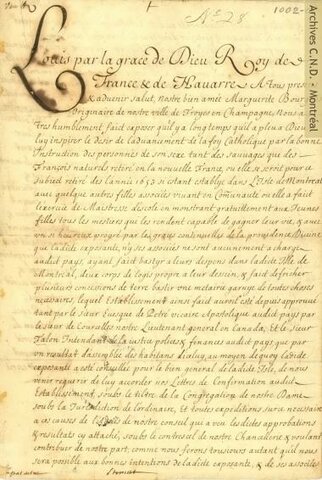 N.º 28
1002
Louis par la grace de Dieu Roy de
France & de Navarre A Tous presens
& aduenir salut, Nostre bien amée Marguerite Bour
Originaire de nostre ville de Troyes en Champagne Nous a
tres humblement fait exposer qu'il y a longtemps qu'il a pleu a Dieu
luy inspirer le desir de l'aduancement de la foy Catholique par la bonne
Instruction des personnes de son sexe tant des sauuages que des
François naturels de la nouuelle France, ou elle se seroit pour ce
subiect retirée des l'année 1653 et estant establye dans L'Isle de Montréal
auec quelque autres filles associées viuant en Communauté ou elle a fait
lexercice de Maistresse d'escole en monstrant gratuittement aux Jeunes
filles tous les mestiers qui les rendent capable de gagner leur vie, & auec
vn si heureux progrez par les graces continuelles de la prouidence Diuine
que ladite exposante, ny ses associées ne sont aucunement a charge
audit pays, ayant fait bastyr a leurs despens dans ladite Isle de
Montréal, deux corps de logis propre a leur dessein, & fait defricher
plusieurs concessions de terre bastir une metairie garnye de toutes choses
necessaires, lequel Establissement ainsi fait auroit esté depuis approuué
tant par le sieur Euesque de Petrée vicaire Apostolique audit pays que par
le sieur de Courcelles nostre Lieutenant general en Canada, Et le sieur
Talon Intendant de la iustice police & finances audit pays, que par
vn resultat d'assemblée des habitans dicelluy, au moyen dequoy ladite
exposante a esté conseillée pour le bien general de ladite Isle, de nous
venir requerir de luy accorder nos Lettres de Confirmation audit
Establissement, soubs le tiltre de la Congregation de nostre Dame
soubs la Jurisdiction de l'ordinaire, et toutes expeditions sur ce necessaires
a ces causes de l'aduis de nostre conseil qui a veu lesdites approbations
& resultats cy attaché, soubs le contreseel de nostre Chancellerie & voulant
contribuer de nostre part, comme nous ferons tousiours autant qu'il nous
sera possible aux bonnes intentions de ladite exposante, & de ses associées
Archives C.N.D. - Montréal